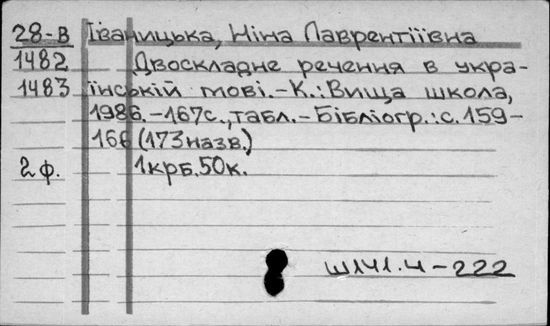 28-В Іваницька, Ніна Лаврентіївна
1482 Двоскладне речення в укра-
1483 їнській мові.-К.:Вища школа,
1986.-167с.,табл.-Бібліогр.:с.159-
166 (173назв.)
2ф. 1крб.50к.
Ш141.4-222